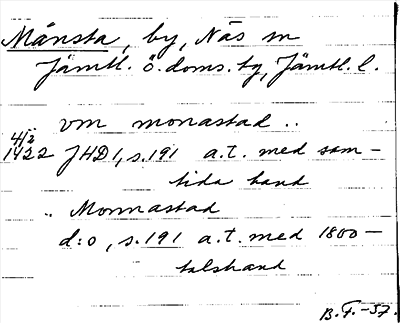 Månsta, by, Näs sn
Jämtl. ö. doms. tg, Jämtl. l.
vm monastad ..
4/2
1422 JHD 1, s. 191 a.t. med sam-
tida hand
.. Monnastad
d:o, s. 191 a.t. med 1800-
talshand
B.F.-37.